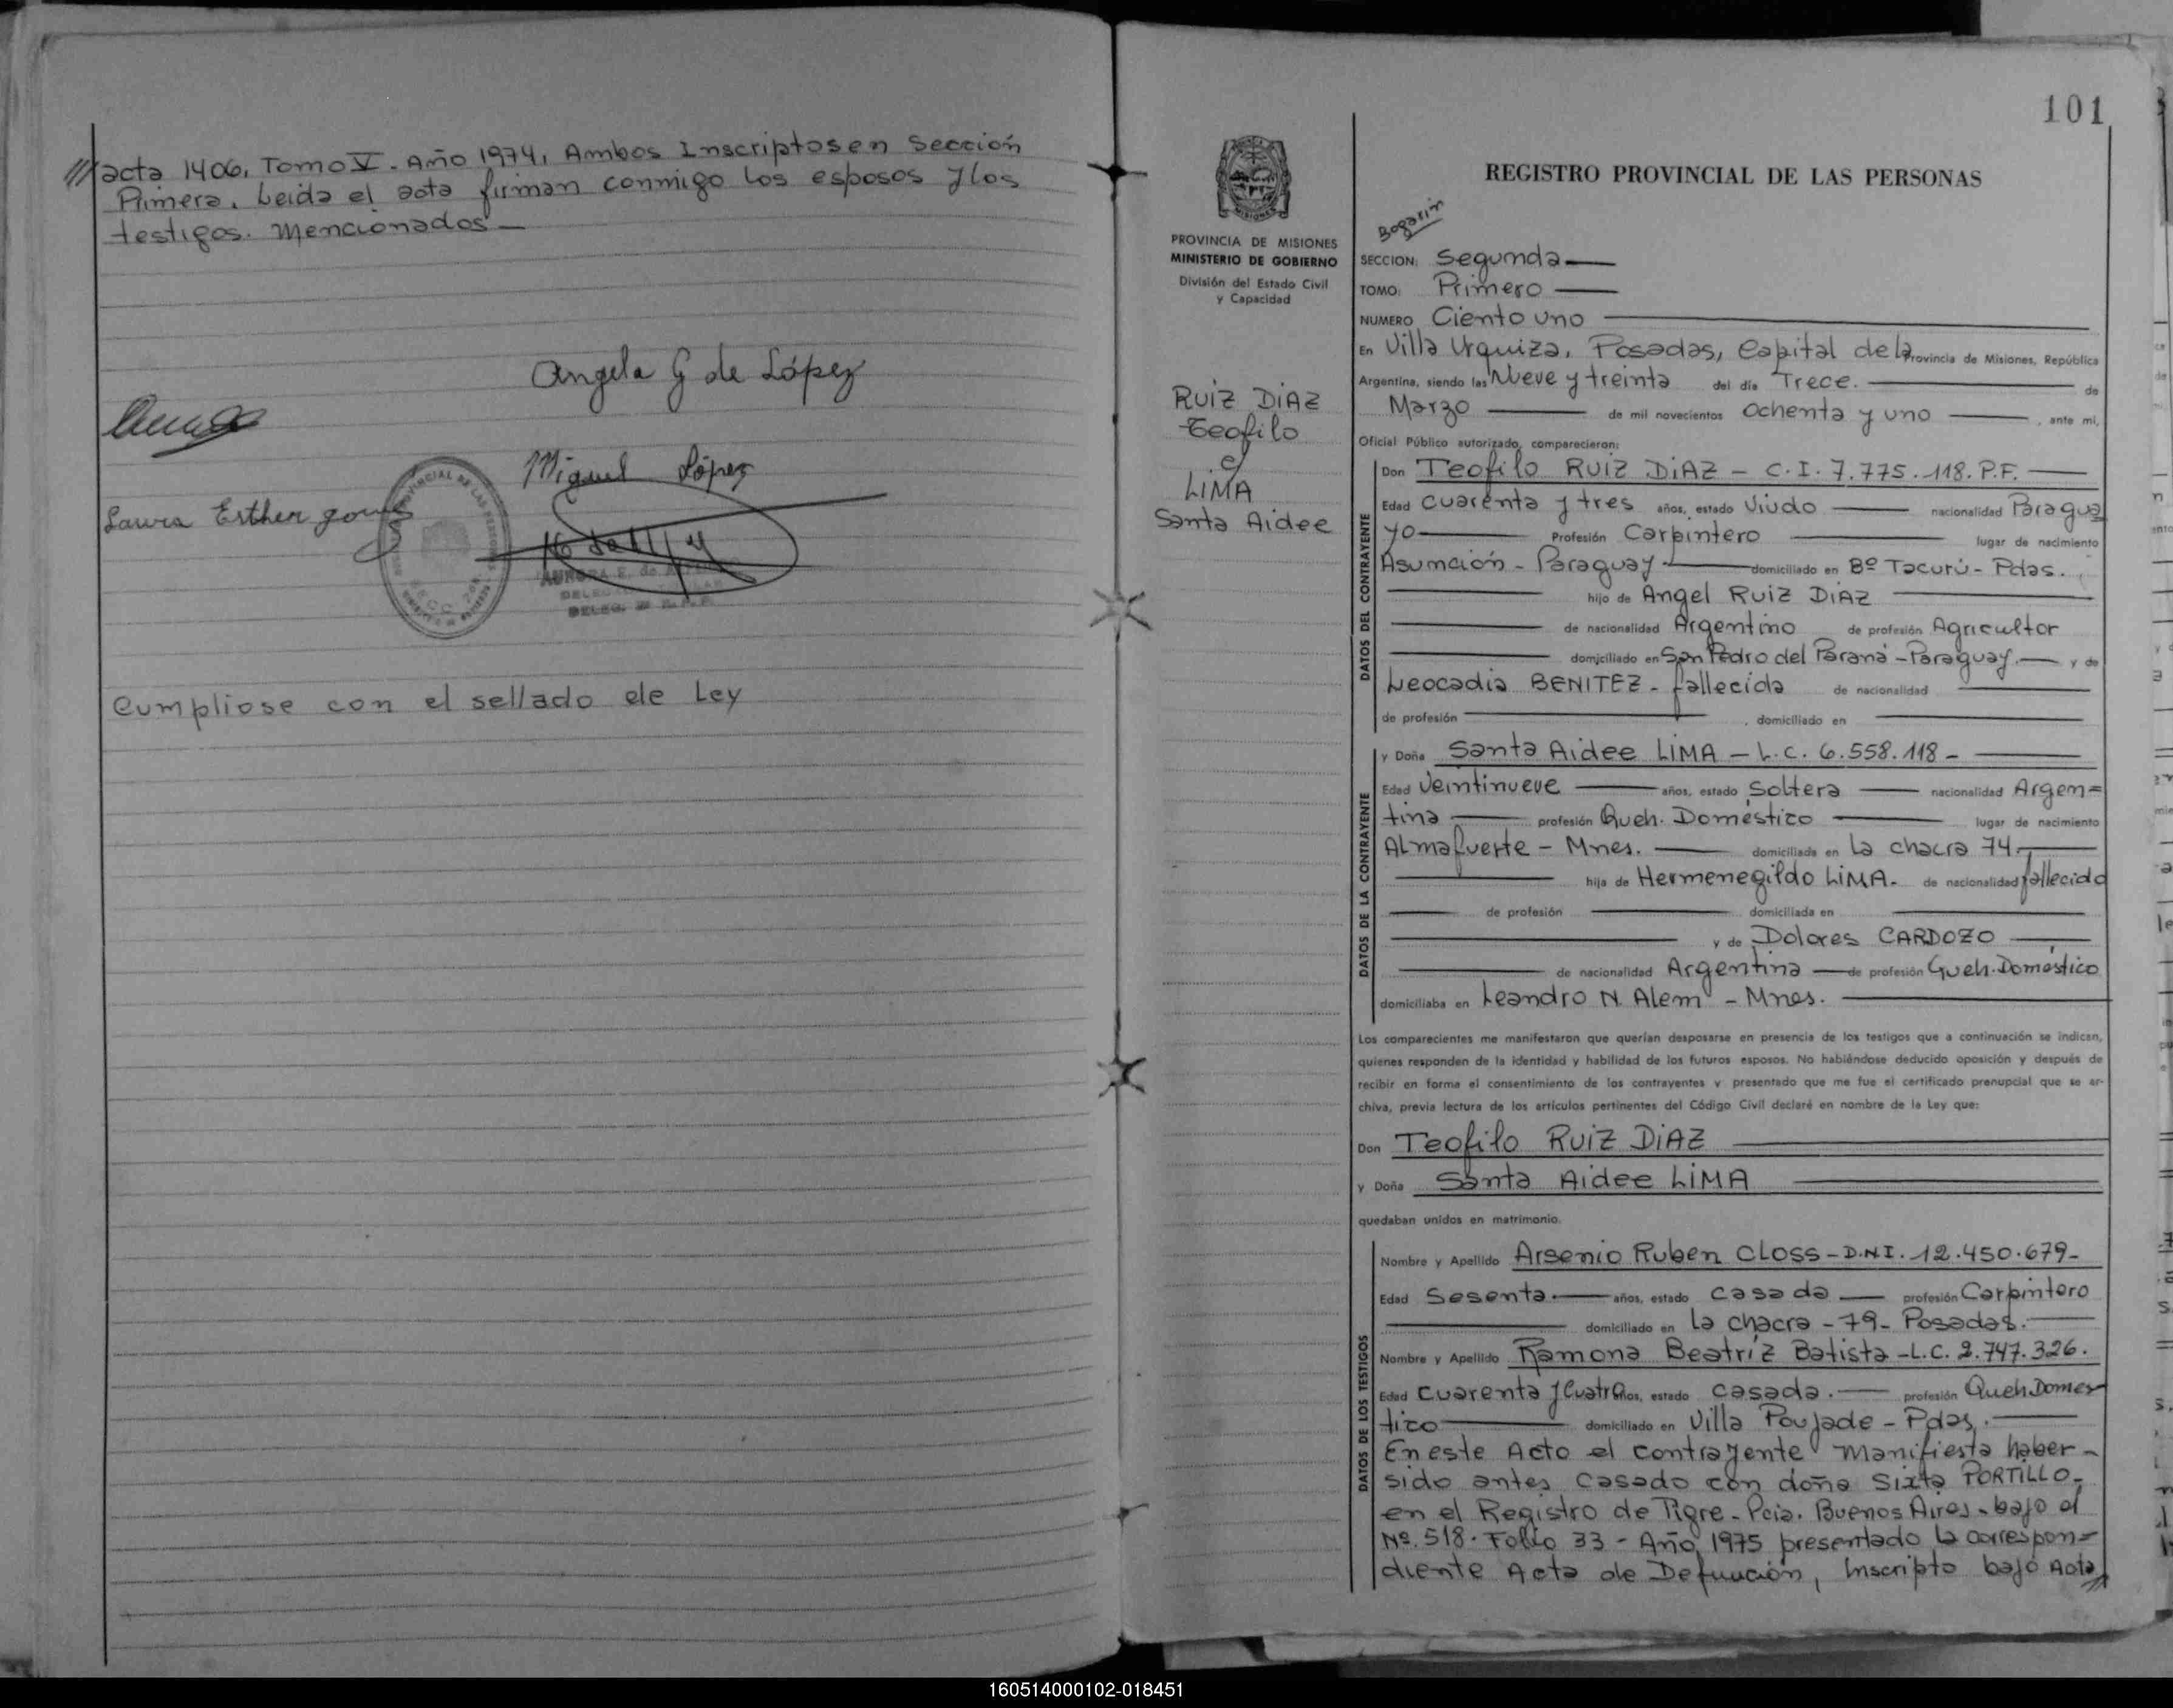 /// acta 1406, Tomo V. Año 1974, Ambos Inscriptos en Sección
Primera. Leida el acta firman conmigo los esposos y los
testigos. Mencionados
Angela G de López
Miguel López
Laura Esther
DELEG.
Cumpliose con el sellado de Ley
101
PROVINCIA DE MISIONES
MINISTERIO DE GOBIERNO
División del Estado Civil
y Capacidad
RUIZ DIAZ
Teofilo
y
LIMA
Santa Aidee
REGISTRO PROVINCIAL DE LAS PERSONAS
Bogarin
SECCION: Segunda
TOMO: Primero
NUMERO Ciento uno
En Villa Urquiza, Posadas, Capital de la Provincia de Misiones, República
Argentina, siendo las Nueve y treinta del día Trece. de
Marzo de mil novecientos Ochenta y uno , ante mi,
Oficial Público autorizado, comparecieron:
DATOS DEL CONTRAYENTE
Don Teofilo RUIZ DIAZ - C.I. 7.775.118. P.F.
Edad Cuarenta y tres años, estado Viudo nacionalidad Paragua
yo Profesión Carpintero lugar de nacimiento
Asunción - Paraguay domiciliado en Bº Tacurú - Pdas.
hijo de Angel RUIZ DIAZ
de nacionalidad Argentino de profesión Agricultor
domiciliado en San Pedro del Paraná - Paraguay. y de
Leocadia BENITEZ - fallecida de nacionalidad
de profesión , domiciliado en
DATOS DE LA CONTRAYENTE
y Doña Santa Aidee LIMA - L.C. 6.558.118 -
Edad Veintinueve años, estado Soltera nacionalidad Argen=
tina profesión Queh. Doméstico lugar de nacimiento
Almafuerte - Mnes. domiciliada en La chacra 74.
hija de Hermenegildo LIMA. de nacionalidad fallecido
de profesión domiciliada en
y de Dolores CARDOZO
de nacionalidad Argentina de profesión Queh. Doméstico
domiciliaba en Leandro N. Alem - Mnes.
Los comparecientes me manifestaron que querían desposarse en presencia de los testigos que a continuación se indican,
quienes responden de la identidad y habilidad de los futuros esposos. No habiéndose deducido oposición y después de
recibir en forma el consentimiento de los contrayentes y presentado que me fue el certificado prenupcial que se ar-
chiva, previa lectura de los artículos pertinentes del Código Civil declaré en nombre de la Ley que:
Don Teofilo RUIZ DIAZ
y Doña Santa Aidee LIMA
quedaban unidos en matrimonio.
DATOS DE LOS TESTIGOS
Nombre y Apellido Arsenio Ruben CLOSS - D.N.I. 12.450.679-
Edad Sesenta. años, estado casado profesión Carpintero
domiciliado en La chacra - 79 - Posadas.
Nombre y Apellido Ramona Beatriz Batista - L.C. 2.747.326.
Edad Cuarenta y Cuatro años, estado casada. profesión Queh Domes
tico domiciliado en Villa Poujade - Pdas.
En este Acto el contrayente manifiesta haber -
sido antes casado con doña Sixta PORTILLO-
en el Registro de Tigre - Pcia. Buenos Aires - bajo el
Nº. 518 - Folio 33 - Año 1975 presentado la correspon=
diente Acta de Defunción, Inscripto bajo Acta //
160514000102-018451